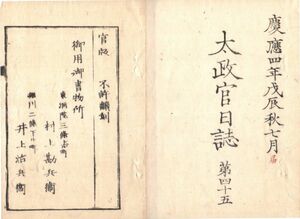 慶應四年戊辰秋七月
太政官日誌
第四十五
官版
不許翻刻
御用御書物所
東洞院三條上ル町
村上勘兵衞
堀川二條下ル町
井上治兵衞